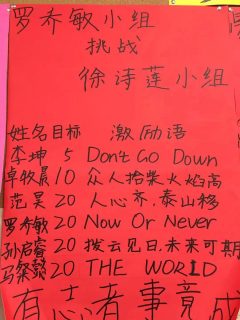 罗乔敏小组
挑战
徐诗莲小组
姓名 目标 激励语
李坤 5 Don't Go Down
卓牧晨 10 众人拾柴火焰高
范昊 20 人心齐,泰山移
罗乔敏 20 Now Or Never
孙启睿 20 拨云见日,未来可期
马粲懿 20 THE WORLD
有志者事竟成